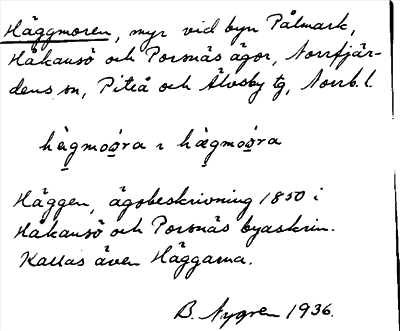 Häggmoren, myr vid byn Pålmark,
Håkansö och Porsnäs ägor, Norrfjär-
dens sn, Piteå och Älvsby tg, Norrb. l.
Häggen, ägobeskrivning 1850 i
Håkansö och Porsnäs byaskrin.
Kallas även Häggarna.
B. Nygren 1936.